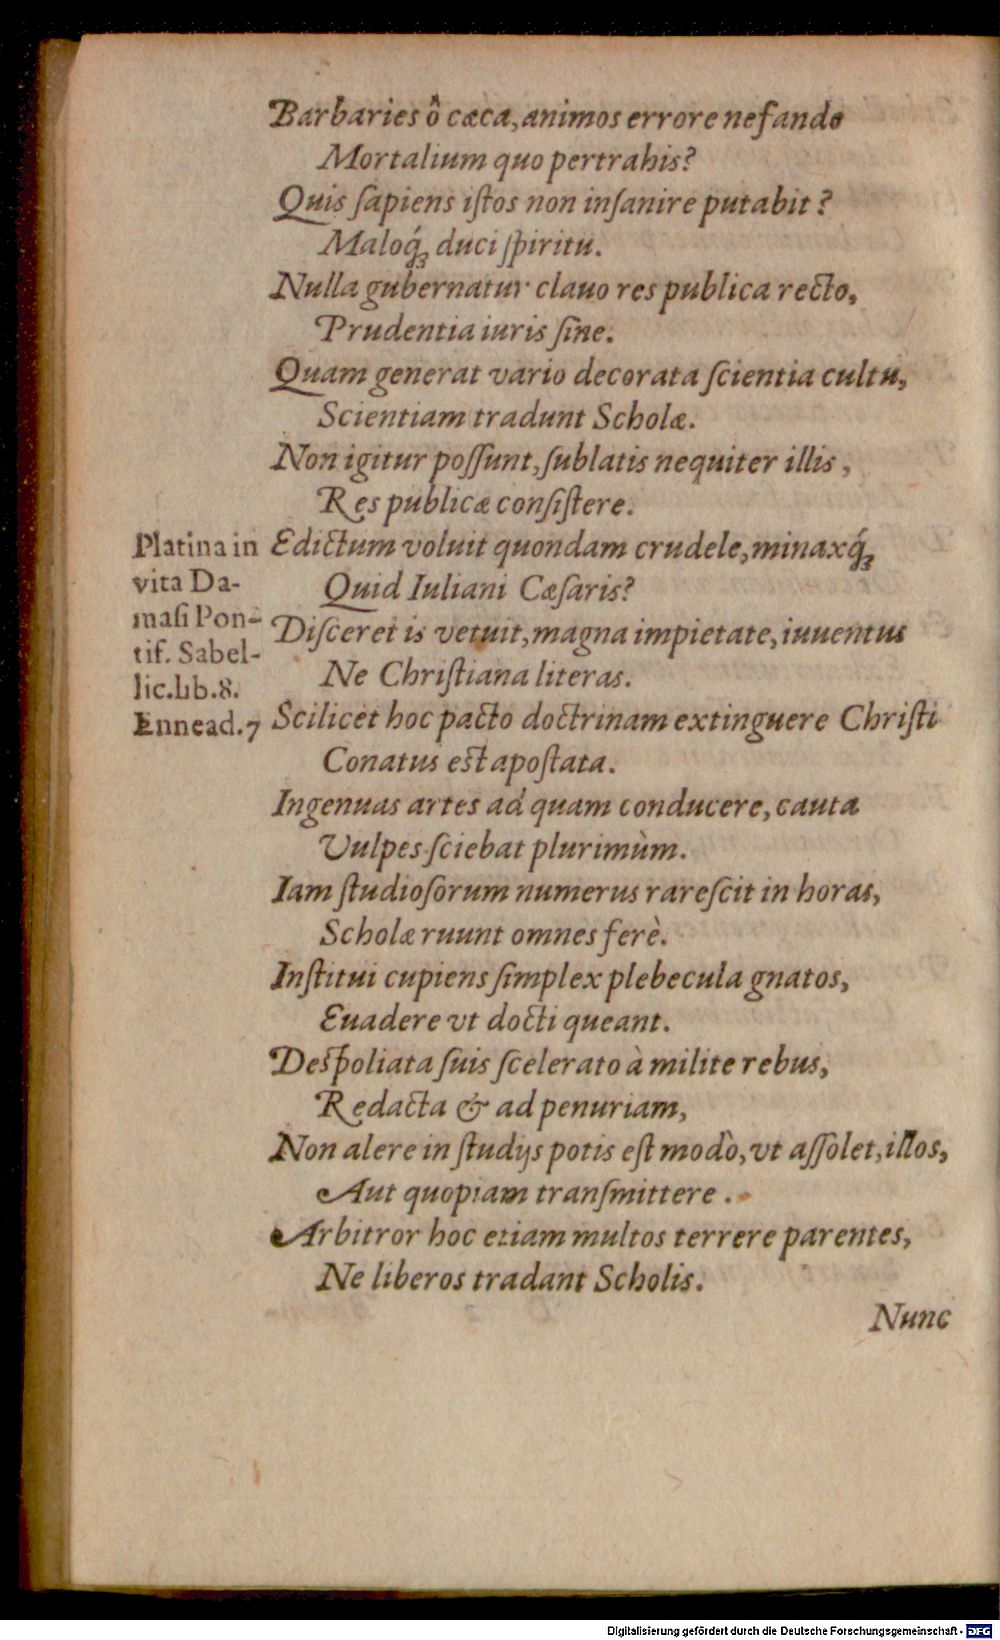 Barbaries ô cæca, animos errore nefando
Mortalium quo pertrahis?
Quis ſapiens iſtos non inſanire putabit?
Maloq́ꝫ duci ſpiritu.
Nulla gubernatur clauo res publica recto,
Prudentia iuris ſine.
Quam generat vario decorata ſcientia cultu,
Scientiam tradunt Scholæ.
Non igitur poſſunt, ſublatis nequiter illis,
Res publicæ conſiſtere.
Platina in
vita Da-
maſi Pon-
tif. Sabel-
lic. Lib. 8.
Ennead. 7
Edictum voluit quondam crudele, minaxq́ꝫ
Quid Iuliani Cæſaris?
Diſceret is vetuit, magna impietate, iuuentus
Ne Chriſtiana literas.
Scilicet hoc pacto doctrinam extinguere Chriſti
Conatus eſt apoſtata.
Ingenuas artes ad quam conducere, cauta
Vulpes ſciebat plurimùm.
Iam ſtudioſorum numerus rareſcit in horas,
Scholæ ruunt omnes ferè.
Inſtitui cupiens ſimplex plebecula gnatos,
Euadere vt docti queant.
Deſpoliata ſuis ſcelerato à milite rebus,
Redacta & ad penuriam,
Non alere in ſtudijs potis eſt modò, vt aſſolet, illos,
Aut quopiam tranſmittere.
Arbitror hoc etiam multos terrere parentes,
Ne liberos tradant Scholis.
Nunc
Digitalisierung gefördert durch die Deutsche Forschungsgemeinschaft - DFG